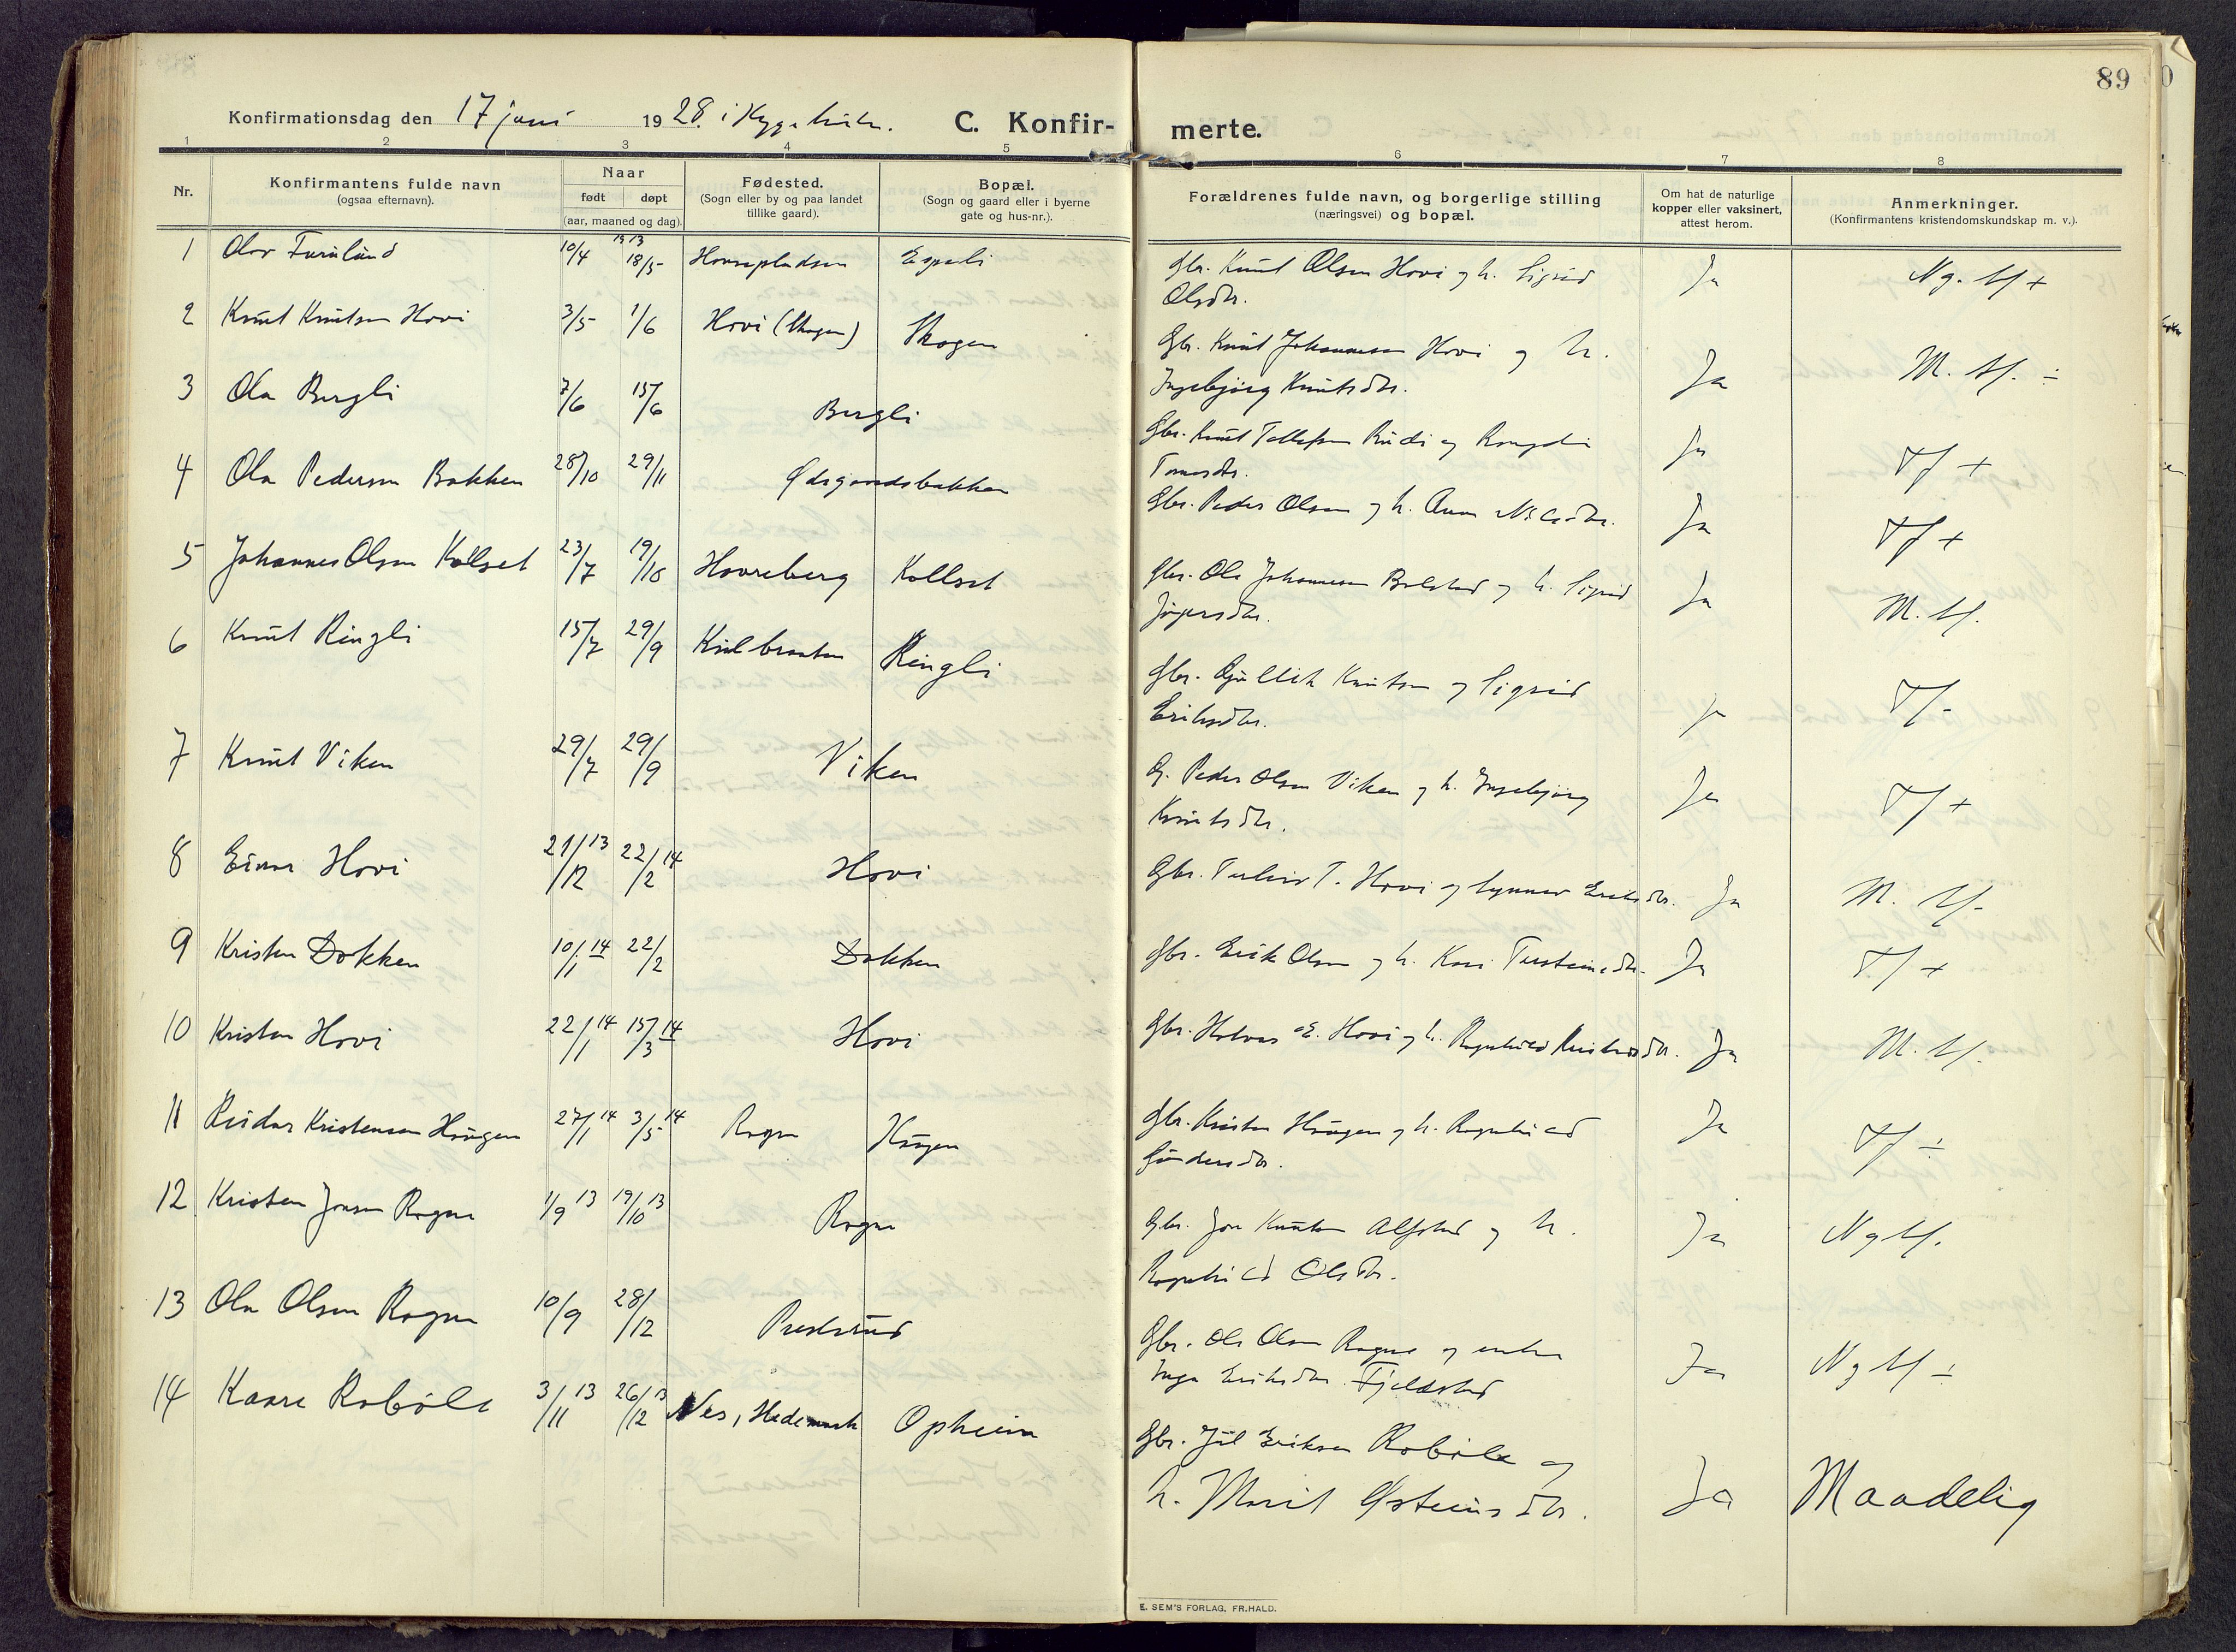 89
Konfirmationsdag den 17 juni 1928. i
C. Konfir-
merte.
1 2 3 4 5 6 7 8
Nr.
Konfirmantens fulde navn
(ogsaa efternavn).
Naar
født døpt
(aar, maaned og dag).
Fødested.
(Sogn eller by og paa landet
tillike gaard).
Bopæl.
(Sogn og gaard eller i byerne
gate og hus-nr.).
Forældrenes fulde navn, og borgerlige stilling
(næringsvei) og bopæl.
Om hat de naturlige
kopper eller vaksinert,
attest herom.
Anmerkninger.
(Konfirmantens kristendomskundskap m. v.).
1 Olav Furulund 10/4 1913 18/5 Espeli Gbr. Knut Olsen Hovi og h. Sigrid Ja Ng. tf +
Olsdtr.
2 Knut Knutsen Hovi 3/5 1/6 Hovi (Skogen) Skogen Gbr. Knut Johannesen Hovi og h. Ja M. tf. ÷
Ingebjørg Knutsdtr.
3 Ola Bergli 7/6 15/6 Bergli Gbr. Knut Tollefsen Rudi og Ja Tf +
4 Ola Pedersen Bakken 28/10 29/11 Ødegaardsbakken Gbr. Peder Olsen og h. Anna Nilsdtr. Ja Tf +
5 Johannes Olsen Kollset 23/7 19/10 Hovreberg Kollset Gbr. Ole Johannesen Bolstad og h. Sigrid Ja M. tf.
6 Knut Ringli 15/7 29/9 Ringli Gbr. Gullik Knutsen og Sigrid Ja Tf-
Eriksdtr.
7 Knut Viken 29/7 29/9 Viken G. Peder Olsen Viken og h. Ingebjørg Ja Tf +
Knutsdtr.
8 Einar Hovi 21/12 13 22/2 14 Hovi Gbr. T. Hovi og Synnøv Eriksdtr. Ja M. tf-
9 Kristen Dokken 10/1 14 22/2 Dokken Gbr. Erik Olsen og h. Kari Torsteinsdtr. Ja Tf +
10 Kristen Hovi 22/1 14 15/3 14 Hovi Gbr. Halvor E. Hovi og h. Ragnhild Kristensdtr. Ja M. tf.
11 Reidar Kristensen Haugen 27/1 14 3/5 14 Rogne Haugen Gbr. Kristen Haugen og h. Ragnhild Ja Tf ÷
Gundersdtr.
12 Kristen Jonsen Rogne 1/9 13 19/10 13 Rogne Gbr. Jon Knutsen Alfstad og h. Ja Ng tf.
Ragnhild Olsdtr.
13 Ola Olsen Rogne 10/9 28/12 Prestrud Gbr. Ole Olsen Rogne og enke Ja Ng tf ÷
Inga Eriksdtr. Fjeldstad
14 Kaare Robøle 3/11 13 26/12 13 Nes, Hedemark Opheim Gbr. Jul Eriksen Robøle og
h. Marit Østeinsdtr. Ja Maadelig
E. SEM'S FORLAG, FR.HALD.